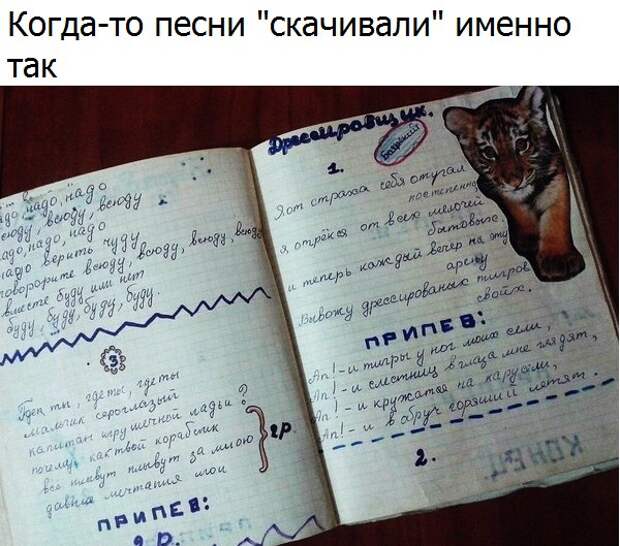 Когда-то песни "скачивали" именно
так
надо, надо
всюду, всюду
надо, надо, надо
надо верить чуду
всюду, всюду, всюду
вместе буду или нет
буду, буду, буду, буду.
3
Где ты, где ты, где ты
мальчик сероглазый
капитан игрушечной ладьи?
почему-как твой кораблик
всё плывут плывут за мною
давние мечтания мои
2р.
ПРИПЕВ:
2 р.
Дрессировщик.
1.
Я от страха себя отучал
постепенно
я отрёкся от всех мелочей
бытовых.
и теперь каждый вечер на эту
арену
Вывожу дрессированых тигров
своих.
ПРИПЕВ:
Ап!-и тигры у ног моих сели,
Ап!-и с лестниц в глаза мне глядят,
Ап!-и кружатся на карусели,
Ап!-и в обруч горящий летят.
2.